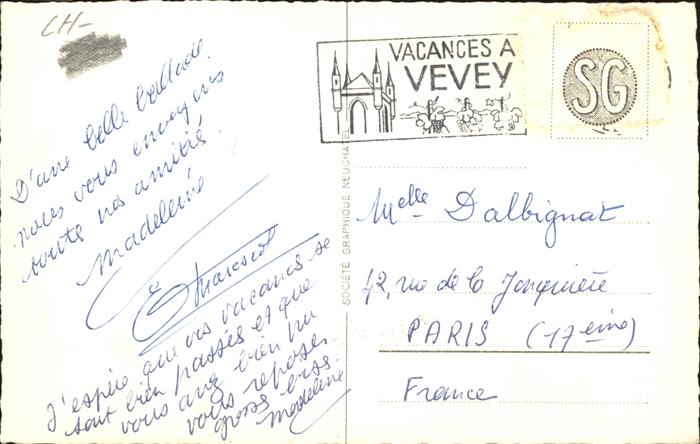 CH-
D'une belle ballade
nous vous envoyons
toute nos amitié.
Madeleine
J'espére que vos vacances se
sont bien passés et que
vous avez bien pu
vous reposer.
gross biss.
Madeleine
SOCIÉTÉ GRAPHIQUE NEUCHATEL
VACANCES A
VEVEY
SG
Melle Dalbignat
42, rue de la Jonquière
PARIS (17eme)
France